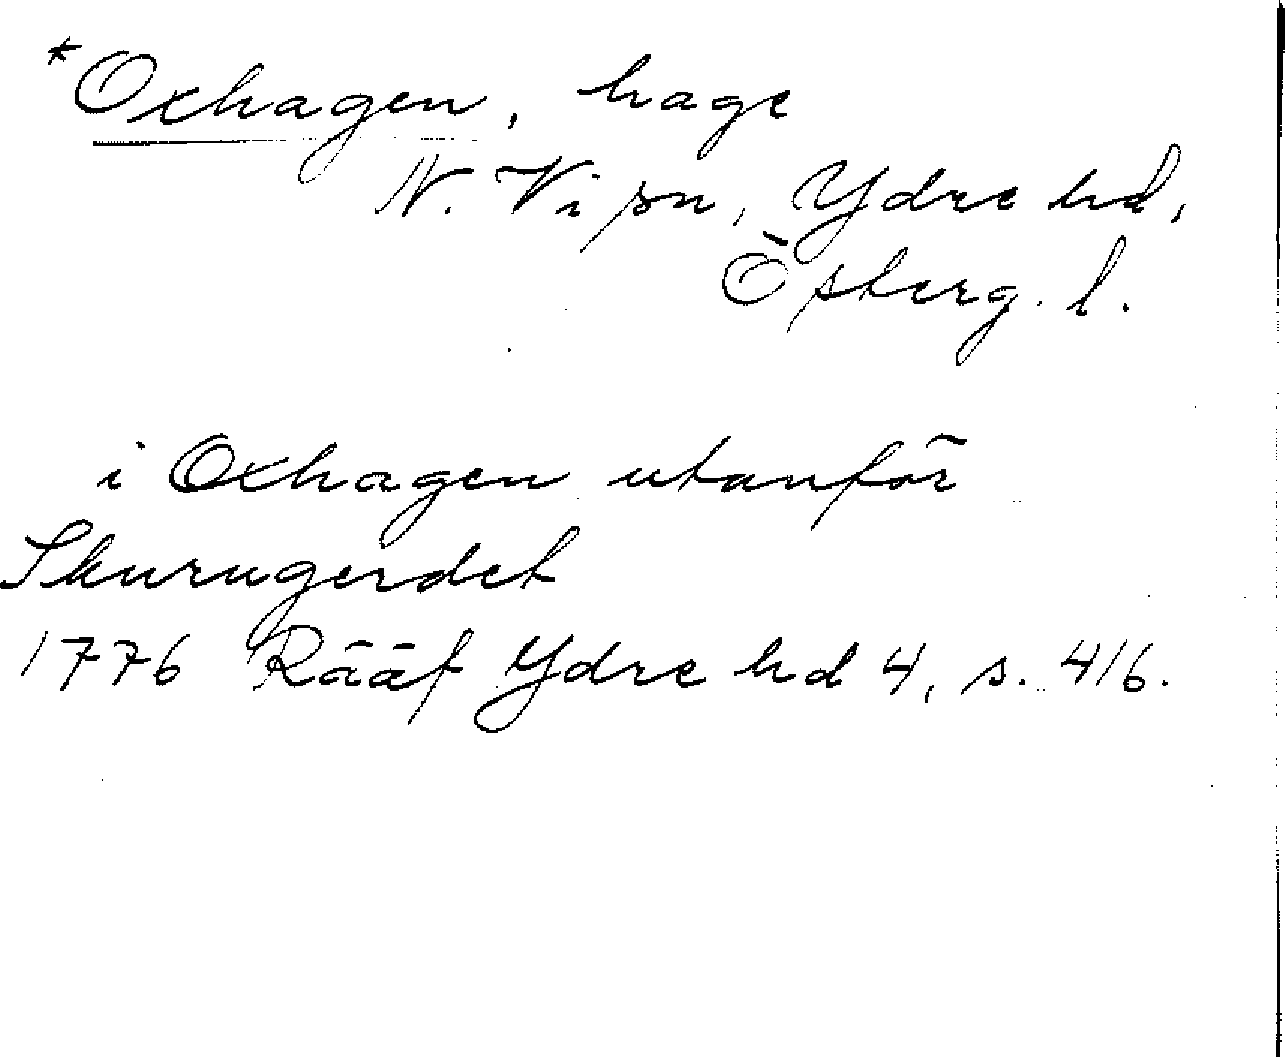 *Oxhagen, hage
N. Vi sn, Ydre hd,
Österg. l.
i Oxhagen utanför
Skurugerdet
1776 Rääf Ydre hd 4, s. 416.